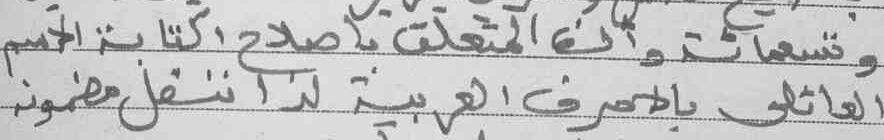 وتسعمائة وألف المتعلق بإصلاح اكتتابة الاسم
العائلي بالحروف العربية لذا ننقل مضمونه